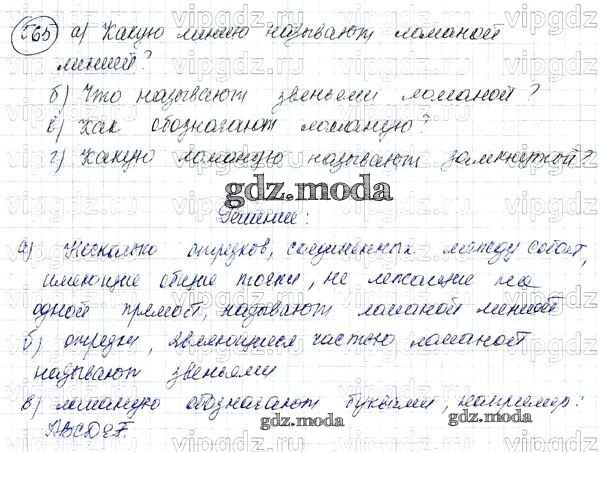 565 а) Какую линию называют ломаной
линией?
б) Что называют звеньями ломаной?
в) Как обозначают ломаную?
г) Какую ломаную называют замкнутой?
gdz.moda
Решение:
а) Несколько отрезков, соединенных между собой,
имеющие общие точки, не лежащие на
одной прямой, называют ломаной линией
б) отрезки, являющиеся частью ломаной
называют звеньями
в) ломаную обозначают буквами, например:
ABCDEF.
gdz.moda
gdz.moda